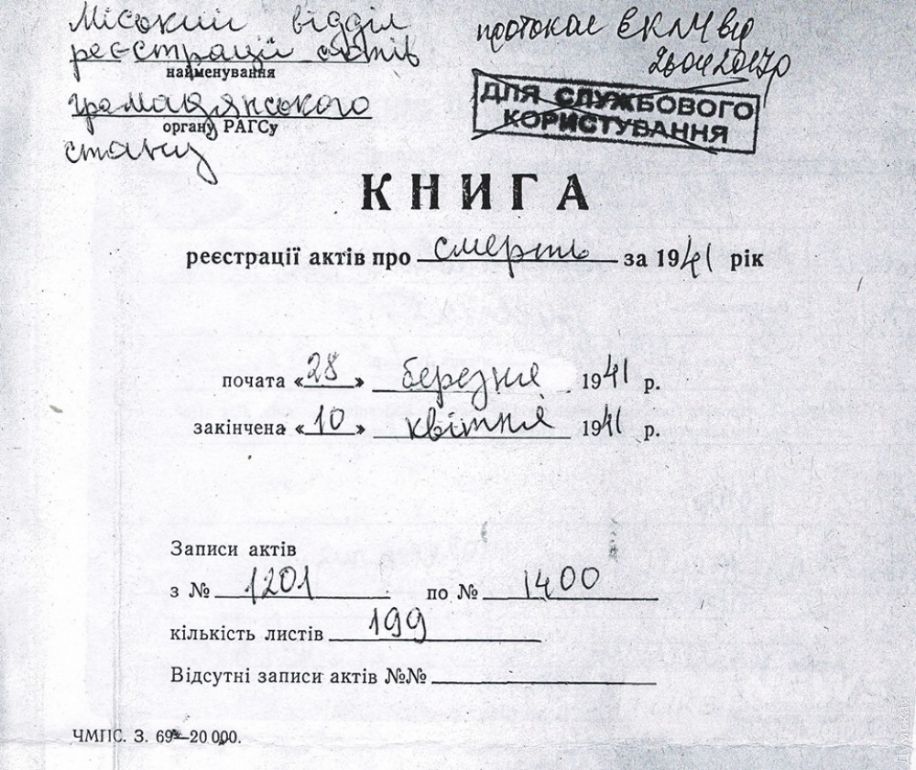 Міський відділ
реєстрації актів
найменування
громадянського
органу РАГСу
стану
протокол ЕКЛЧ від
26.04.2017р
ДЛЯ СЛУЖБОВОГО
КОРИСТУВАННЯ
КНИГА
реєстрації актів про смерть за 1941 рік
почата «28» березня 1941 р.
закінчена «10» квітня 1941 р.
Записи актів
з № 1201 по № 1400
кількість листів 199
Відсутні записи актів №№
ЧМПС. З. 69—20 000.